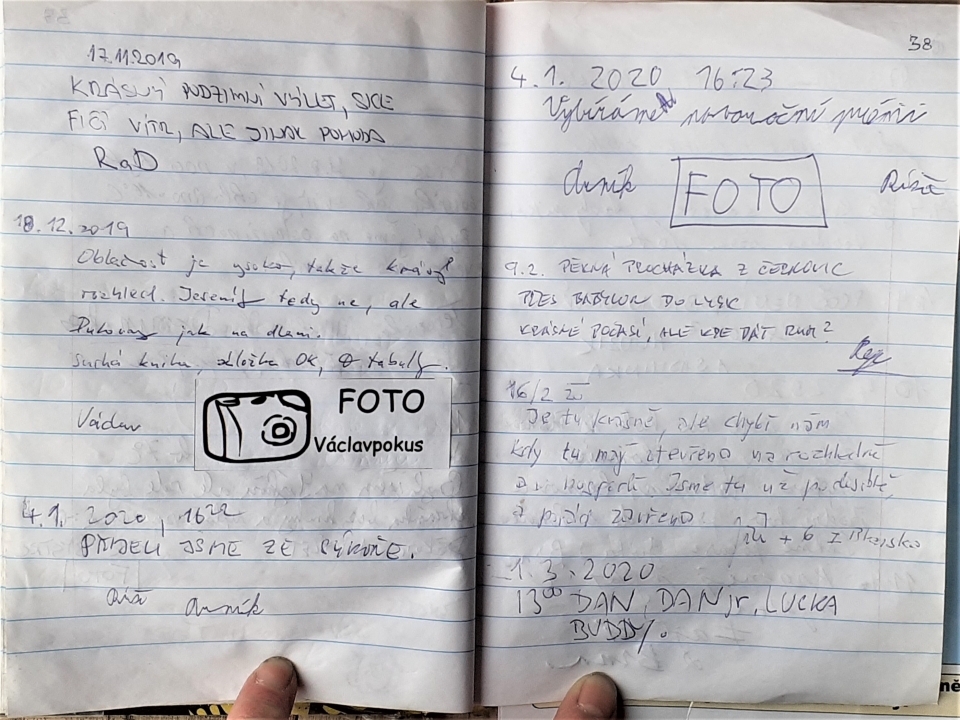 17.11.2019
KRÁSNÝ PODZIMNÍ VÝLET, SICE
FIČÍ VÍTR, ALE JINAK POHODA
RaD
18.12.2019
Oblačnost je vysoko, takže krásný
rozhled. Jeseníky tedy ne, ale
jak na dlani.
suchá kniha, složka OK, tabulky.
Václav
FOTO
Václavpokus
4.1. 2020, 16²²
PŘIJELI JSME ZE SÝKOŘE.
38
4.1. 2020 16:23
Vybíráme novoroční přání
FOTO
9.2. PĚKNÁ PROCHÁZKA Z
PŘES BABYLON DO LYSIC
KRÁSNÉ POČASÍ, ALE KDE DÁT RUM?
16/2
Je tu krásně, ale chybí nám
kdy tu mají otevřeno na rozhledně
Jsme tu už podruhé,
zavřeno
+ 6 z Blanska
1.3.2020
13⁰⁰ DAN, DAN jr, LUCKA
BUDDY.
ně